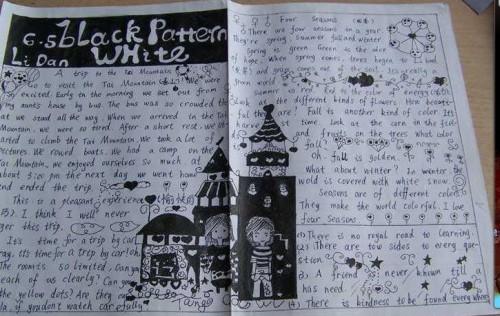 6.5 Black Pattern
Li Dan White
A trip to the Tai Mountain
Go to visit the Tai Mountain We were
so excited. Early in the morning we set out from
my aunt's house by bus. The bus was so crowded th
at we stand all the way. When we arrived in the Tai
Mountain, we were so tired. After a short rest, we st
arted to climb the Tai Mountain. We took a lot of
pictures. We rowed boats. We had a camp on the
Tai Mountain. We enjoyed ourselves so much. at
about 5:00 pm the next day we went home
and ended the trip.
This is a pleasant experience
I think I will never
forget this trip.
It's time for a trip by car
The room is so limited, Can you
each of us clearly? Can you
the yellow dots? Are they
if you don't watch carefully?
Tange
Four Seasons
There are four seasons in a year.
They're spring, summer, fall and winter.
Spring is green. Green is the color
of hope. When spring comes, trees begin to bud
and grass comes out of the soil. It's really a
green world.
Summer is red. Red is the color of energy
Look at the different kinds of flowers. How beauti-
ful they are! Fall is another kind of color. It's
time. Look at the corn in the field
and fruits on the trees. What color
is fall?
oh. fall is golden.
What about winter? In winter, the
world is covered with white snow.
Seasons are of different colors.
They make the world colorful. I love
four seasons.
(1) There is no royal road to learning.
(2) There are tow sides to every que-
stion.
(3) A friend is never known till a
has need.
(4) There is kindness to be found everywhere